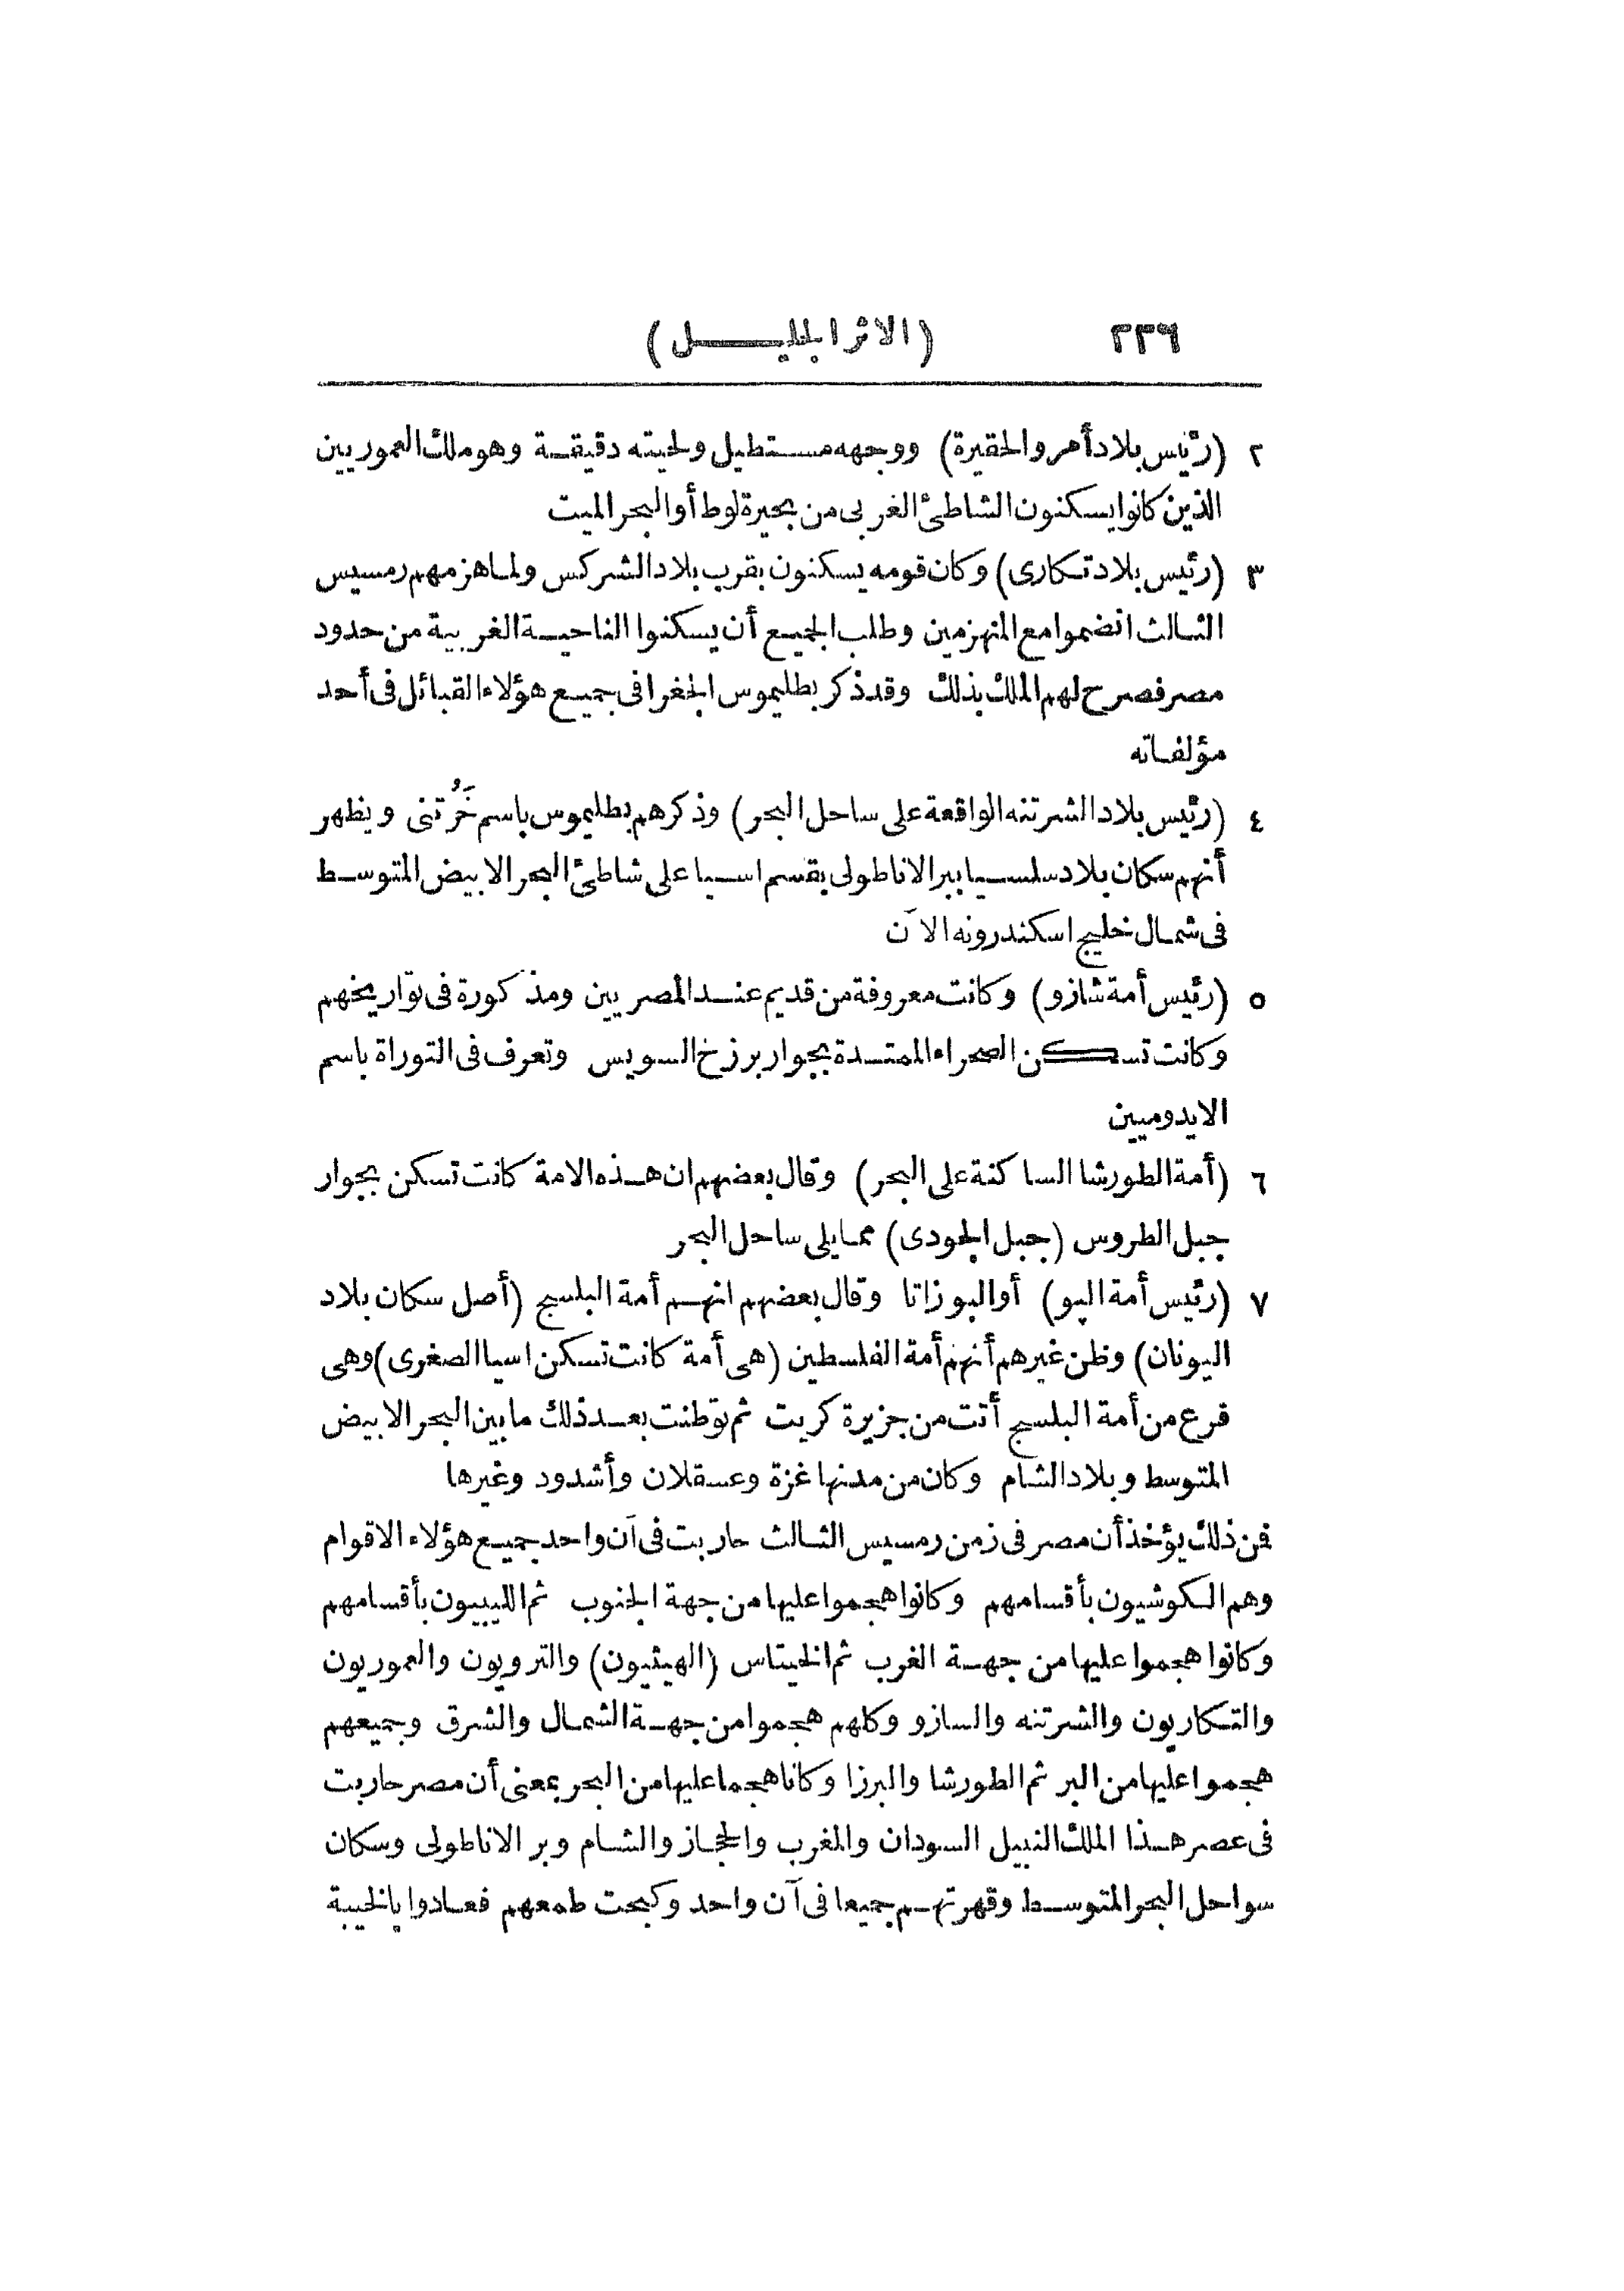 ٢٣٦ (الاثر الجليل)
٢ (رئيس بلاد أهرو الحقيرة) ووجهه مستطيل ولحيته دقيقة وهو ملك العموريين
الذين كانوا يسكنون الشاطئ الغربى من بحيرة لوط أو البحر الميت
٣ (رئيس بلاد تكارى) وكان قومه يسكنون بقرب بلاد الشركس ولما هزمهم رمسيس
الثالث انضموا مع المنهزمين وطلب الجميع أن يسكنوا الناحية الغربية من حدود
مصر فصرح لهم الملك بذلك وقد ذكر بطليموس الجغرافى جميع هؤلاء القبائل فى أحد
مؤلفاته
٤ (رئيس بلاد الشرتنه الواقعة على ساحل البحر) وذكرهم بطليموس باسم خَرُتنى ويظهر
أنهم سكان بلاد سلسيا ببر الاناطولى بقسم اسيا على شاطئ البحر الابيض المتوسط
فى شمال خليج اسكندرونه الآن
٥ (رئيس أمة شازو) وكانت معروفة من قديم عند المصريين ومذكورة فى تواريخهم
وكانت تسكن الصحراء الممتدة بجوار برزخ السويس وتعرف فى التوراة باسم
الايدوميين
٦ (أمة الطورشا الساكنة على البحر) وقال بعضهم ان هذه الامة كانت تسكن بجوار
جبل الطروس (جبل الجودى) مما يلى ساحل البحر
٧ (رئيس أمة الپو) أو البوزاتا وقال بعضهم انهم أمة البلسج (أصل سكان بلاد
اليونان) وظن غيرهم أنهم أمة الفلسطين (هى أمة كانت تسكن اسيا الصغرى) وهى
فرع من أمة البلسج أتت من جزيرة كريت ثم توطنت بعد ذلك ما بين البحر الابيض
المتوسط وبلاد الشام وكان من مدنها غزة وعسقلان وأشدود وغيرها
فمن ذلك يؤخذ أن مصر فى زمن رمسيس الثالث حاربت فى آن واحد جميع هؤلاء الاقوام
وهم الكوشيون بأقسامهم وكانوا هجموا عليها من جهة الجنوب ثم الليبيون بأقسامهم
وكانوا هجموا عليها من جهة الغرب ثم الخيتاس (الهيثيون) والترويون والعموريون
والتكاريون والشرتنه والسازو وكلهم هجموا من جهة الشمال والشرق وجميعهم
هجموا عليها من البر ثم الطورشا والبرزا وكانا هجما عليها من البحر بمعنى أن مصر حاربت
فى عصر هذا الملك النبيل السودان والمغرب والحجاز والشام وبر الاناطولى وسكان
سواحل البحر المتوسط وقهرتهم جميعا فى آن واحد وكبحت طمعهم فعادوا بالخيبة